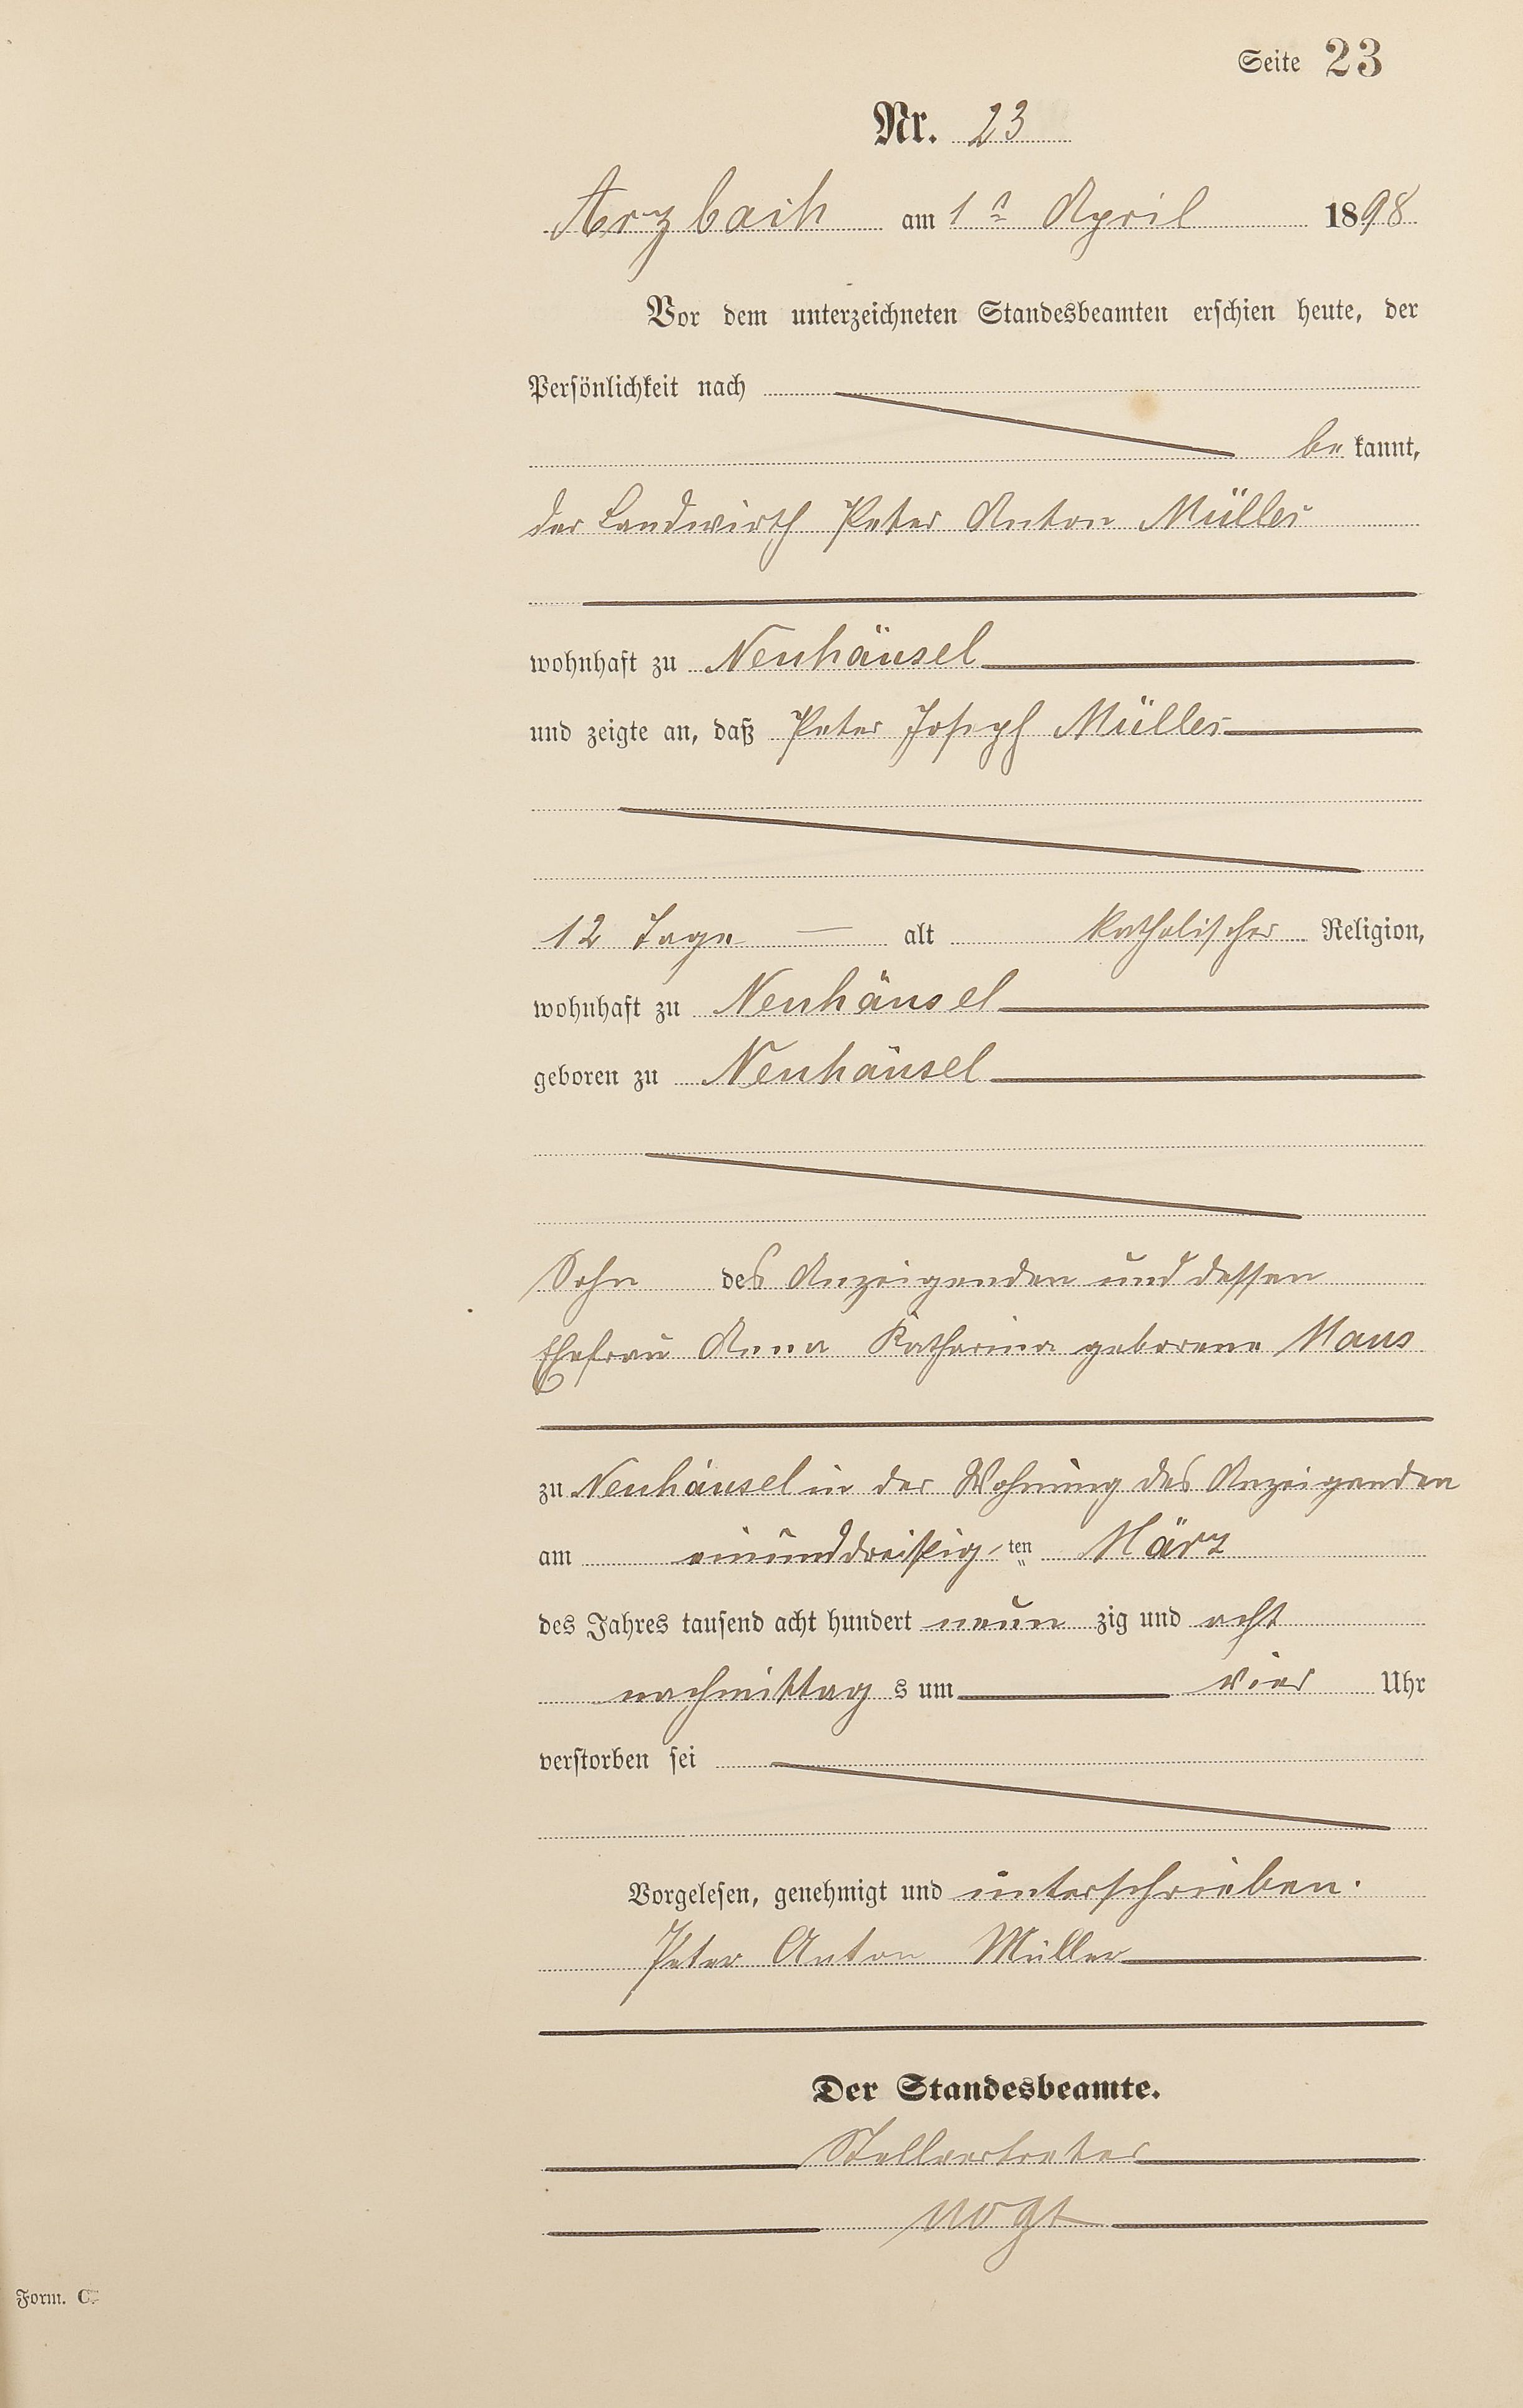 Seite 23
Nr. 23
Arzbach am 1n April 1898
Vor dem unterzeichneten Standesbeamten erschien heute, der
Persönlichkeit nach
be kannt,
der Landwirth Peter Anton Müller
wohnhaft zu Neuhäusel
und zeigte an, daß Peter Joseph Müller
12 Tage alt katholischer Religion,
wohnhaft zu Neuhäusel
geboren zu Neuhäusel
Sohn des Anzeigenden und dessen
Ehefrau Anna Katharina geborene Maus
zu Neuhäusel in der Wohnung des Anzeigenden
am einunddreißig-ten März
des Jahres tausend acht hundert neun zig und acht
nachmittag s um vier Uhr
verstorben sei
Vorgelesen, genehmigt und unterschrieben.
Peter Anton Müller
Der Standesbeamte.
Stellvertreter
Form. C.